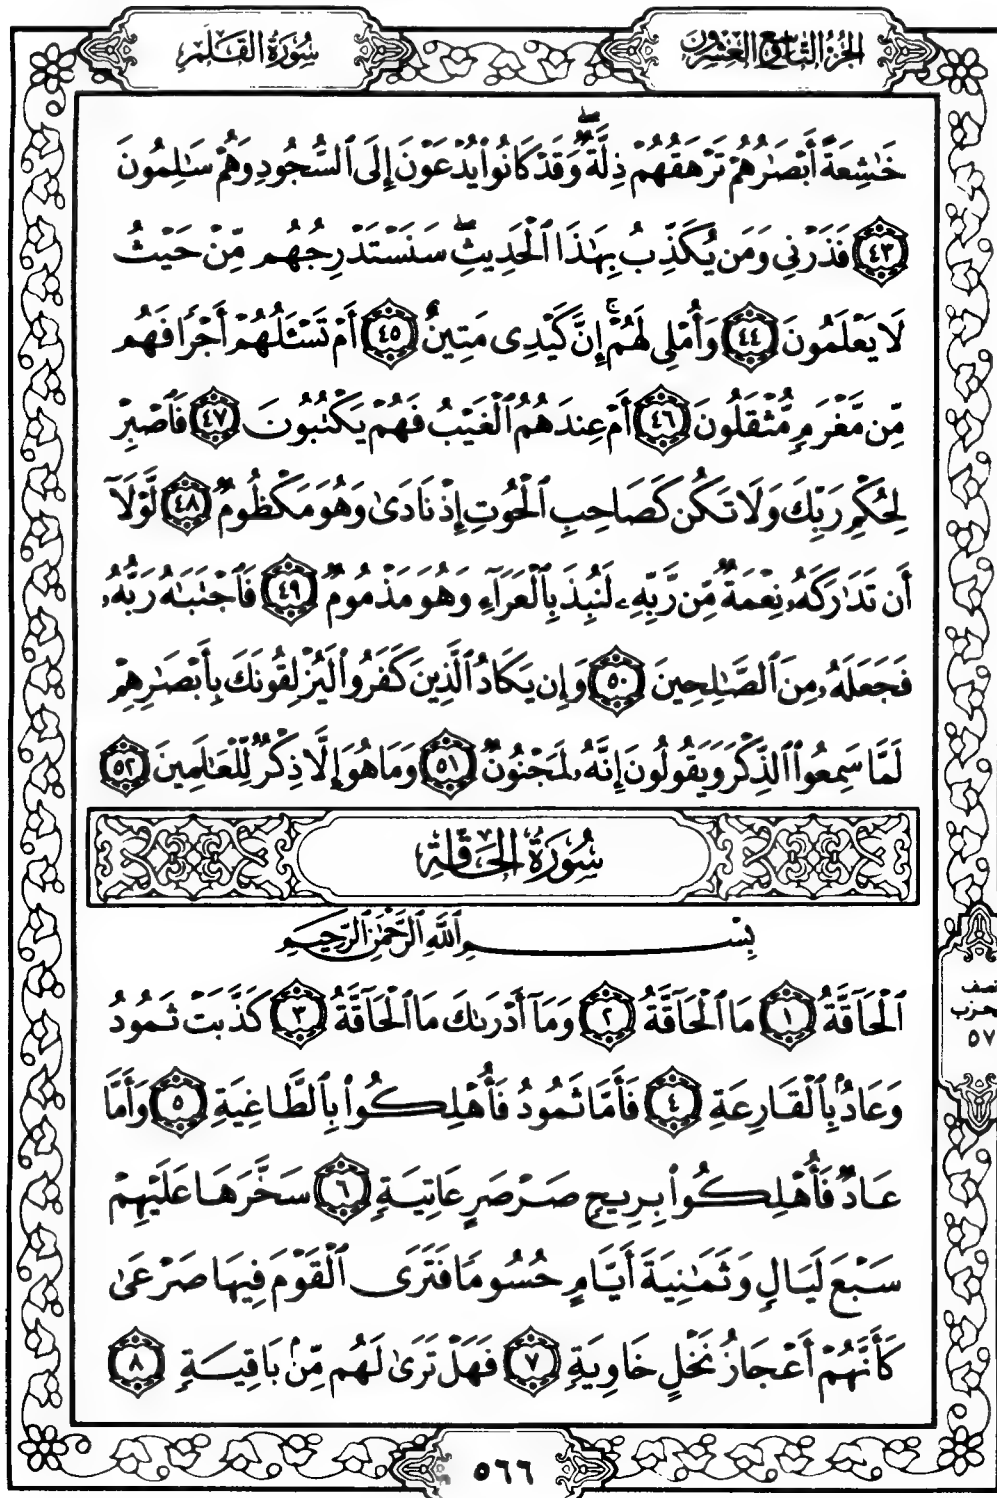 الجزء التاسع والعشرون
سورة القلم
خَٰشِعَةً أَبْصَٰرُهُمْ تَرْهَقُهُمْ ذِلَّةٌۖ وَقَدْ كَانُوا۟ يُدْعَوْنَ إِلَى ٱلسُّجُودِ وَهُمْ سَٰلِمُونَ
٤٣ فَذَرْنِى وَمَن يُكَذِّبُ بِهَٰذَا ٱلْحَدِيثِۖ سَنَسْتَدْرِجُهُم مِّنْ حَيْثُ
لَا يَعْلَمُونَ ٤٤ وَأُمْلِى لَهُمْۚ إِنَّ كَيْدِى مَتِينٌ ٤٥ أَمْ تَسْـَٔلُهُمْ أَجْرًا فَهُم
مِّن مَّغْرَمٍ مُّثْقَلُونَ ٤٦ أَمْ عِندَهُمُ ٱلْغَيْبُ فَهُمْ يَكْتُبُونَ ٤٧ فَٱصْبِرْ
لِحُكْمِ رَبِّكَ وَلَا تَكُن كَصَاحِبِ ٱلْحُوتِ إِذْ نَادَىٰ وَهُوَ مَكْظُومٌ ٤٨ لَّوْلَآ
أَن تَدَٰرَكَهُۥ نِعْمَةٌ مِّن رَّبِّهِۦ لَنُبِذَ بِٱلْعَرَآءِ وَهُوَ مَذْمُومٌ ٤٩ فَٱجْتَبَٰهُ رَبُّهُۥ
فَجَعَلَهُۥ مِنَ ٱلصَّٰلِحِينَ ٥٠ وَإِن يَكَادُ ٱلَّذِينَ كَفَرُوا۟ لَيُزْلِقُونَكَ بِأَبْصَٰرِهِمْ
لَمَّا سَمِعُوا۟ ٱلذِّكْرَ وَيَقُولُونَ إِنَّهُۥ لَمَجْنُونٌ ٥١ وَمَا هُوَ إِلَّا ذِكْرٌ لِّلْعَٰلَمِينَ ٥٢
سُورَةُ الحَاقَّةِ
بِسْمِ ٱللَّهِ ٱلرَّحْمَٰنِ ٱلرَّحِيمِ
ٱلْحَآقَّةُ ١ مَا ٱلْحَآقَّةُ ٢ وَمَآ أَدْرَىٰكَ مَا ٱلْحَآقَّةُ ٣ كَذَّبَتْ ثَمُودُ
وَعَادٌۢ بِٱلْقَارِعَةِ ٤ فَأَمَّا ثَمُودُ فَأُهْلِكُوا۟ بِٱلطَّاغِيَةِ ٥ وَأَمَّا
عَادٌ فَأُهْلِكُوا۟ بِرِيحٍ صَرْصَرٍ عَاتِيَةٍ ٦ سَخَّرَهَا عَلَيْهِمْ
سَبْعَ لَيَالٍ وَثَمَٰنِيَةَ أَيَّامٍ حُسُومًا فَتَرَى ٱلْقَوْمَ فِيهَا صَرْعَىٰ
كَأَنَّهُمْ أَعْجَازُ نَخْلٍ خَاوِيَةٍ ٧ فَهَلْ تَرَىٰ لَهُم مِّنۢ بَاقِيَةٍ ٨
نصف
الحزب
٥٧
٥٦٦